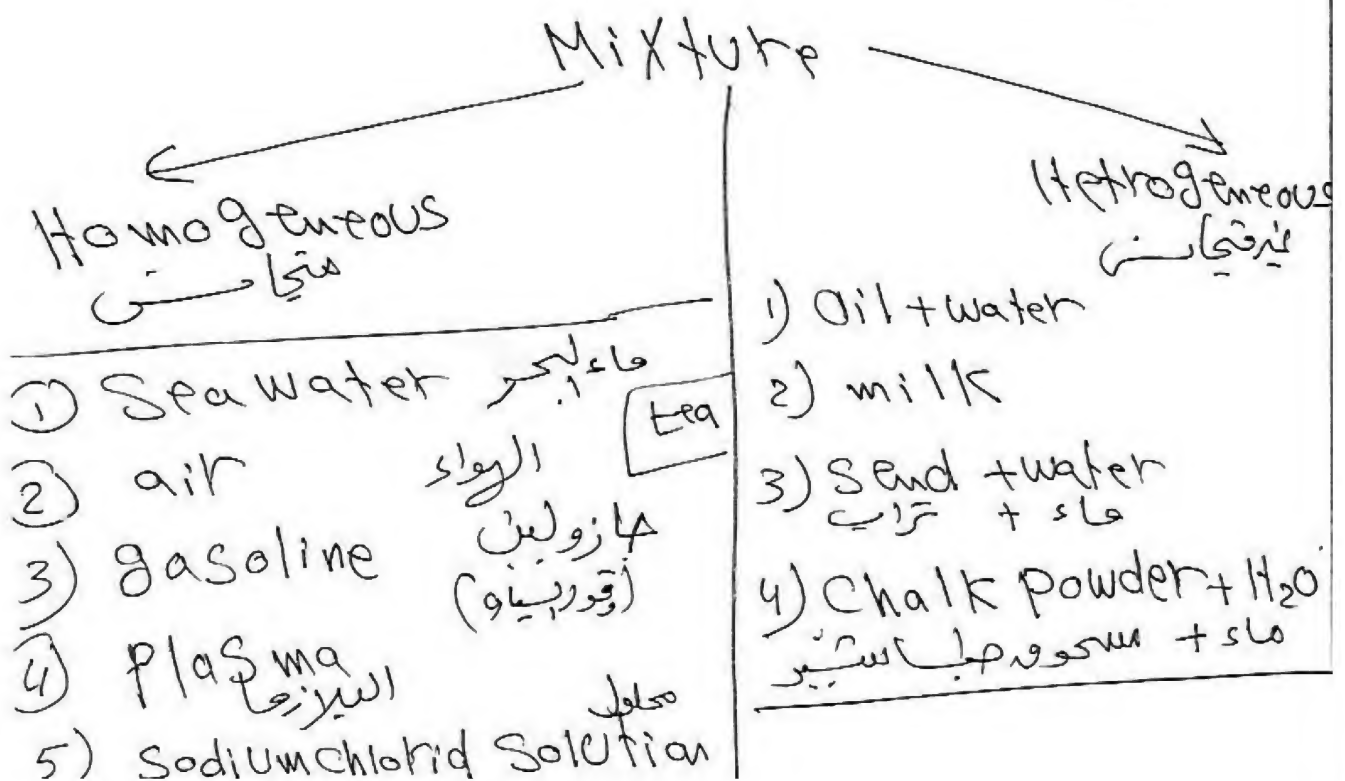 Mixture
Homogeneous
متجانس
① Sea water ماء البحر
tea
② air الهواء
3) gasoline جازولين
(وقود السيارة)
④ Plasma البلازما
5) Sodium chlorid Solution محلول
Hetrogeneous
غير متجانس
1) Oil + water
2) milk
3) Send + water
ماء + تراب
4) Chalk powder + H₂O
ماء + مسحوق طباشير